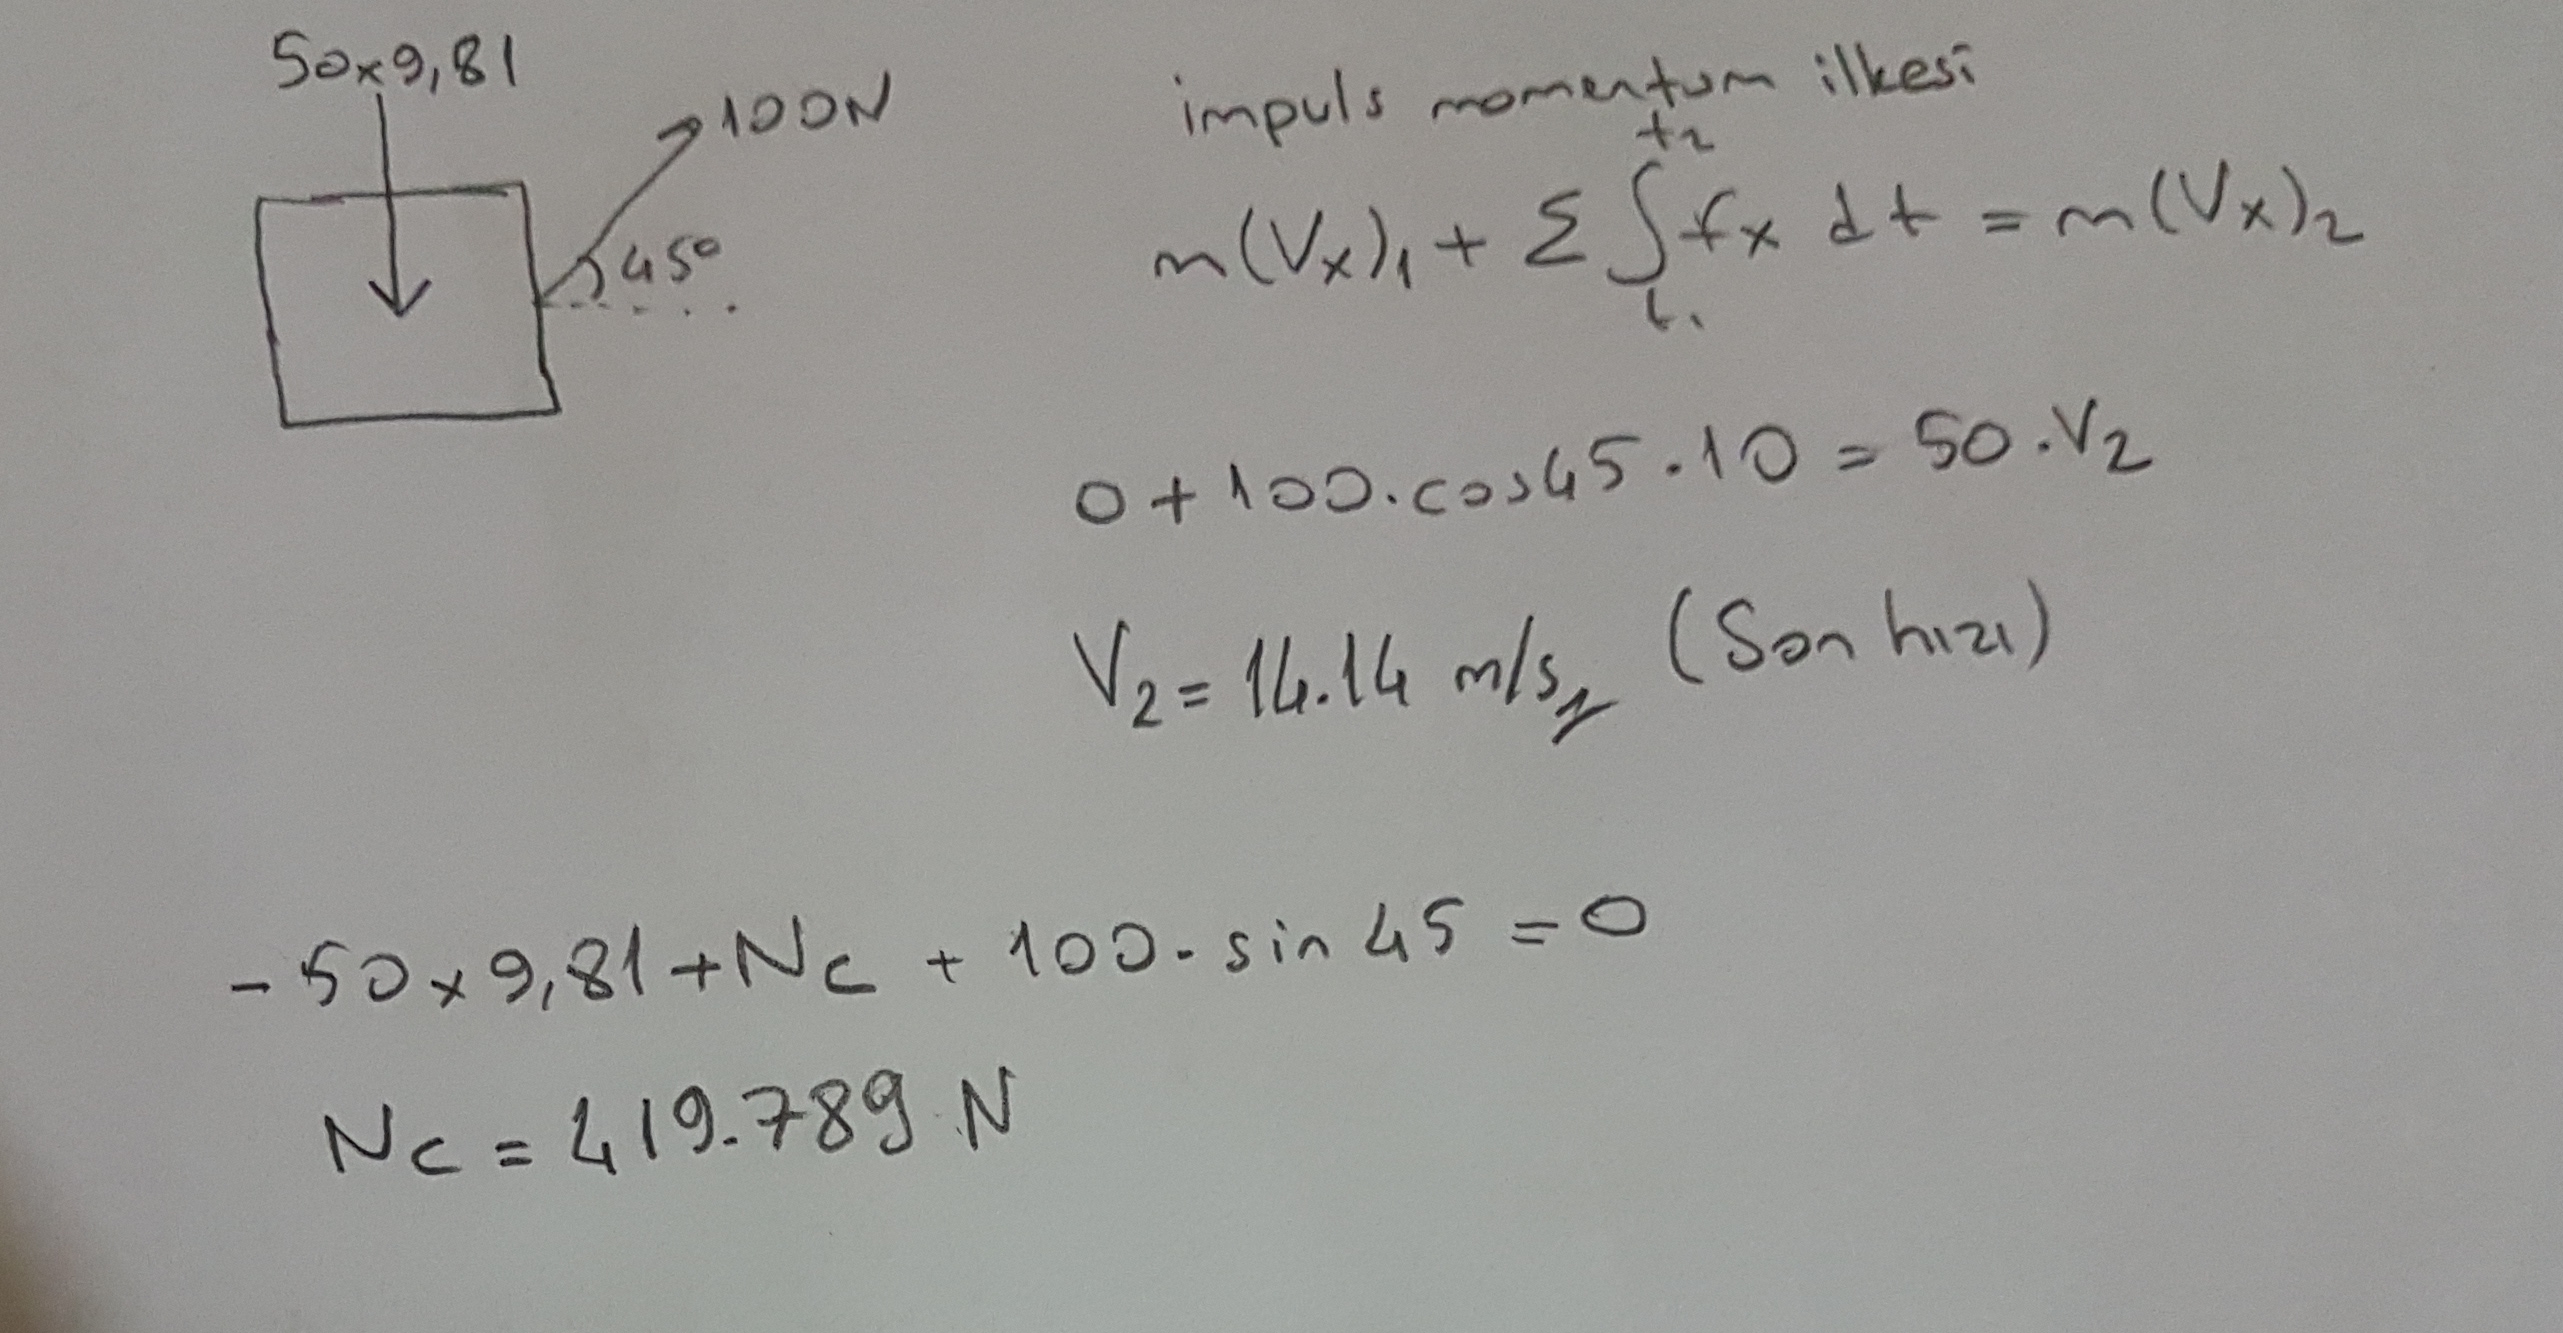 50x9,81
100N
45°
impuls momentum ilkesi
m(Vx)₁ + Σ ∫ fx dt = m(Vx)₂
t₂
t₁
0 + 100.cos45.10 = 50.V₂
V₂ = 14.14 m/s (Son hızı)
-50x9,81 + Nc + 100.sin45 = 0
Nc = 419.789 N